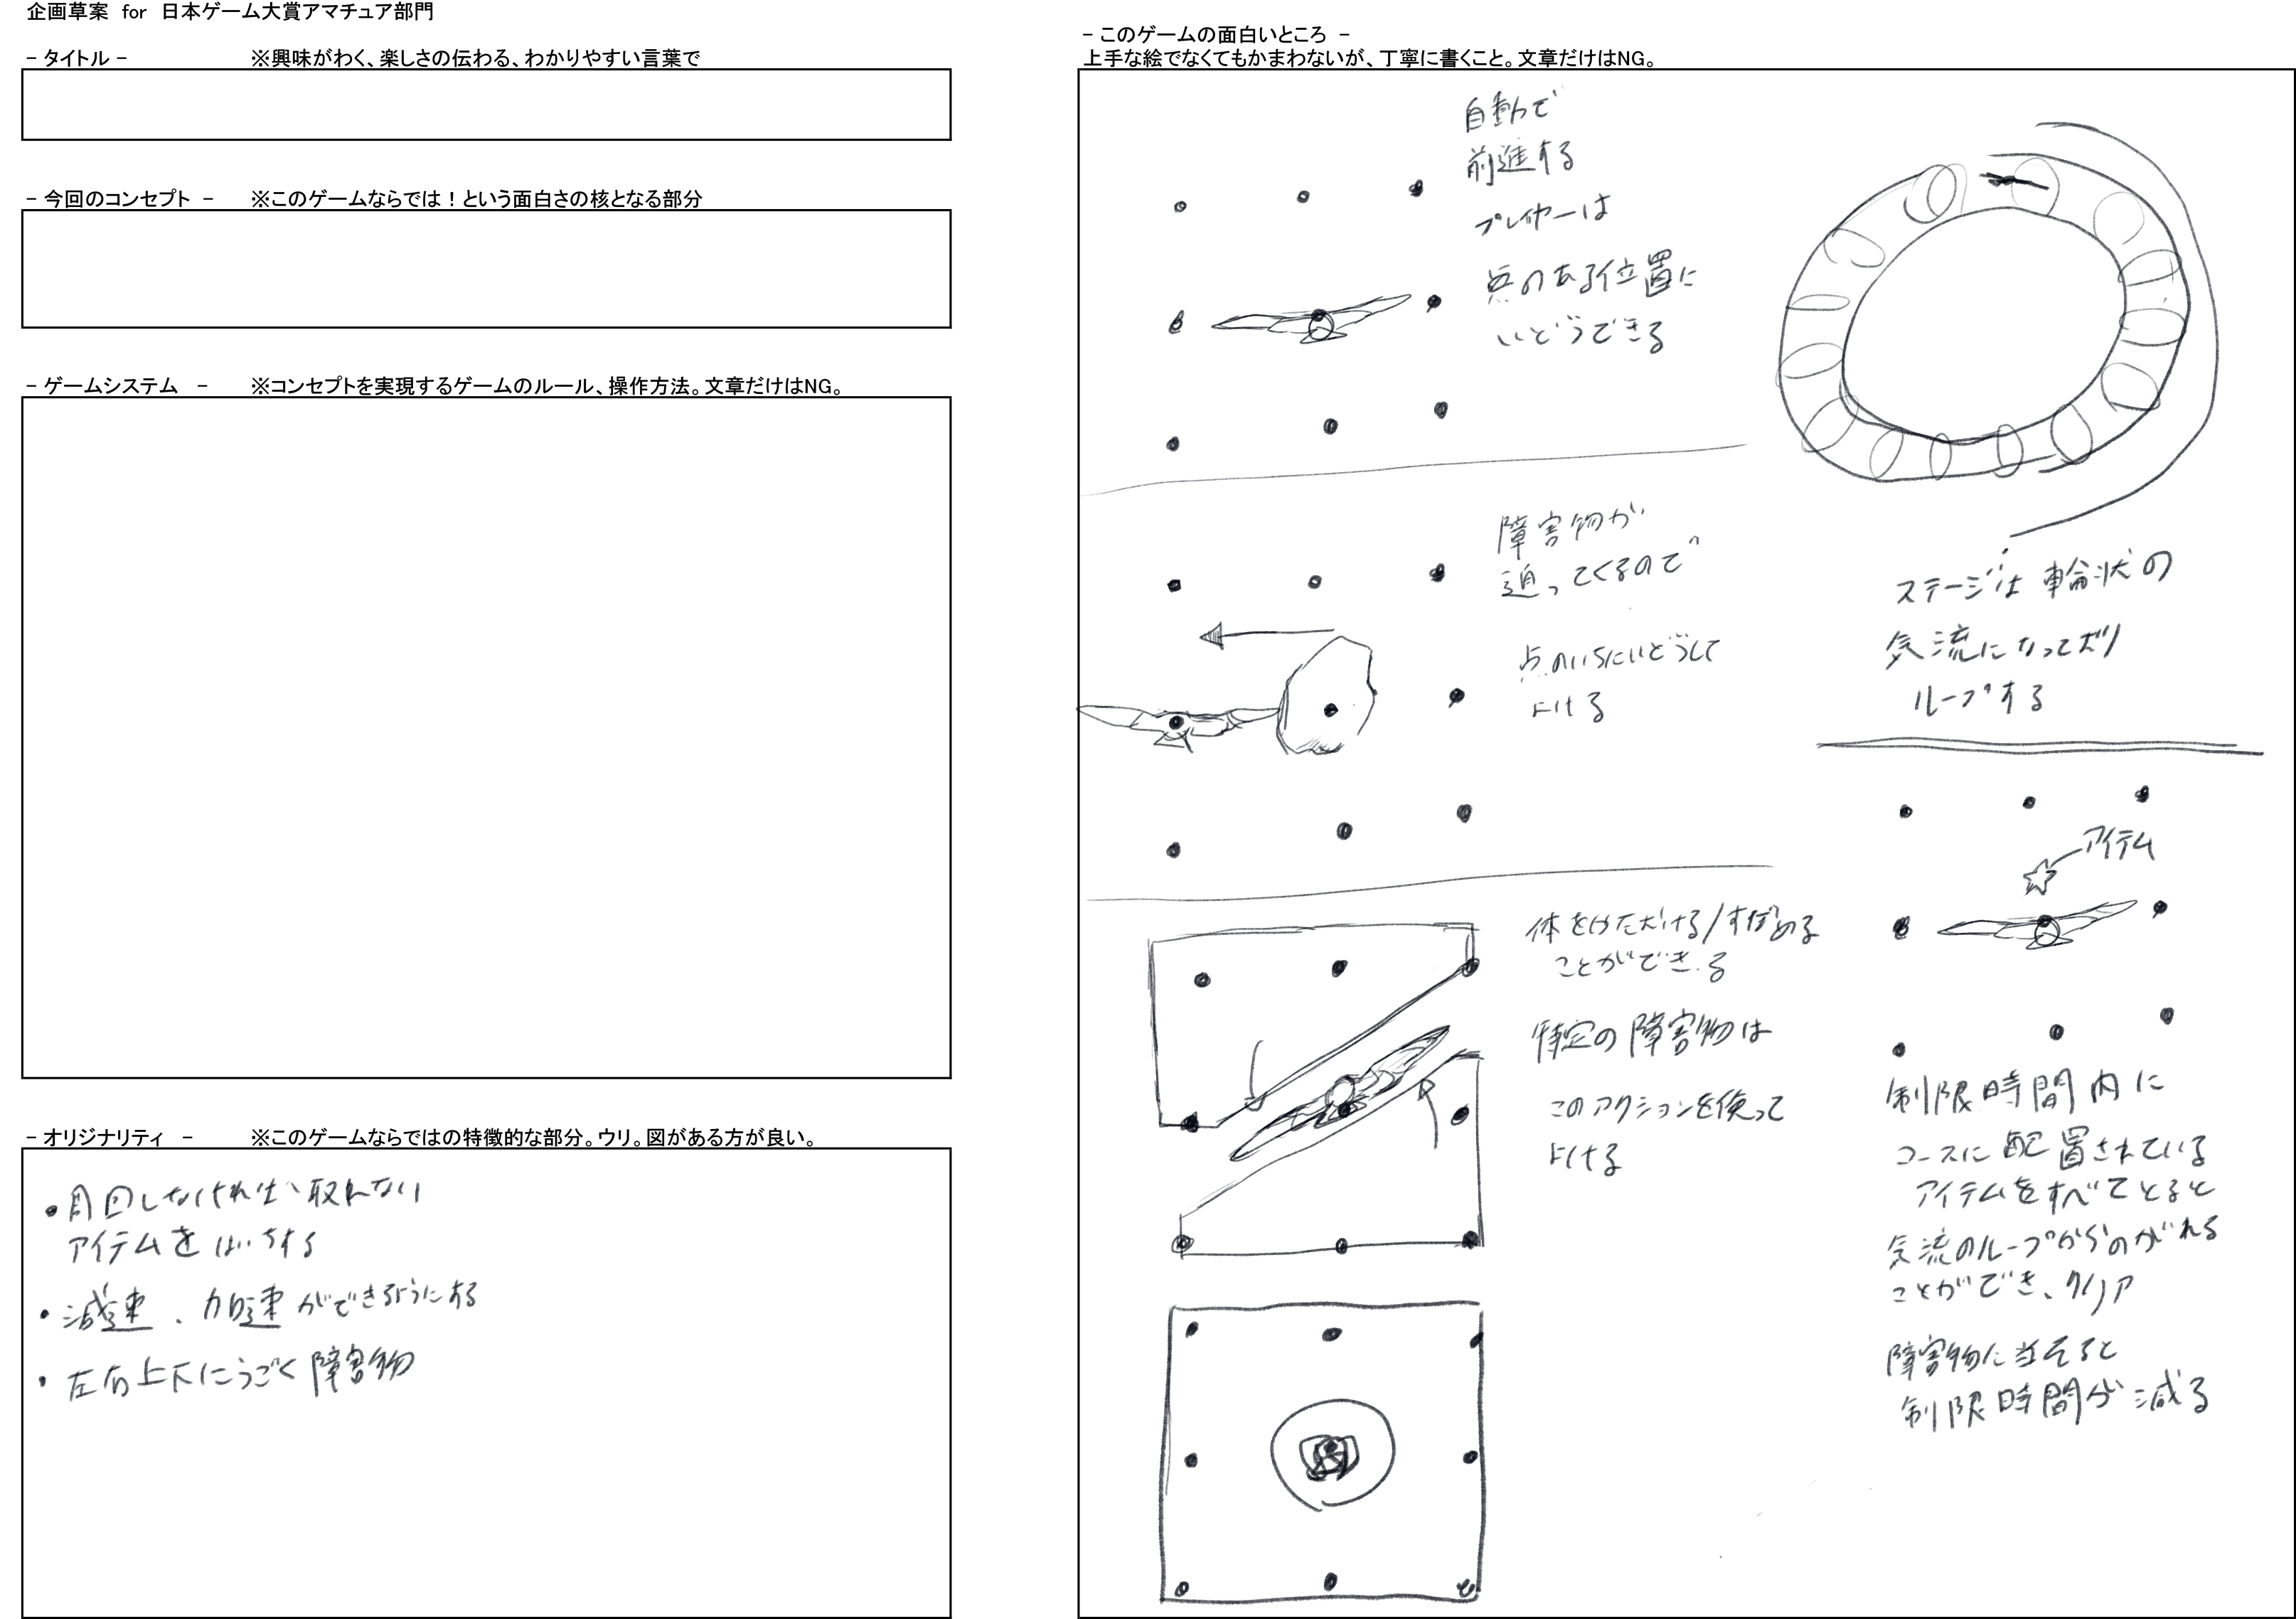 企画草案 for 日本ゲーム大賞アマチュア部門
- タイトル - ※興味がわく、楽しさの伝わる、わかりやすい言葉で
- 今回のコンセプト - ※このゲームならでは！という面白さの核となる部分
- ゲームシステム - ※コンセプトを実現するゲームのルール、操作方法。文章だけはNG。
- オリジナリティ - ※このゲームならではの特徴的な部分。ウリ。図がある方が良い。
・周回しなければ取れない
アイテムをはいちする
・減速、加速ができるようにする
・左右上下にうごく障害物
- このゲームの面白いところ -
上手な絵でなくてもかまわないが、丁寧に書くこと。文章だけはNG。
自動で
前進する
プレイヤーは
点のある位置に
いどうできる
障害物が
迫ってくるので
点のいちにいどうして
よける
体をかたむける/すぼめる
ことができる
特定の障害物は
このアクションを使って
よける
ステージは輪状の
気流になっており
ループする
アイテム
制限時間内に
コースに配置されている
アイテムをすべてとると
気流のループからのがれる
ことができ、クリア
障害物に当たると
制限時間が減る